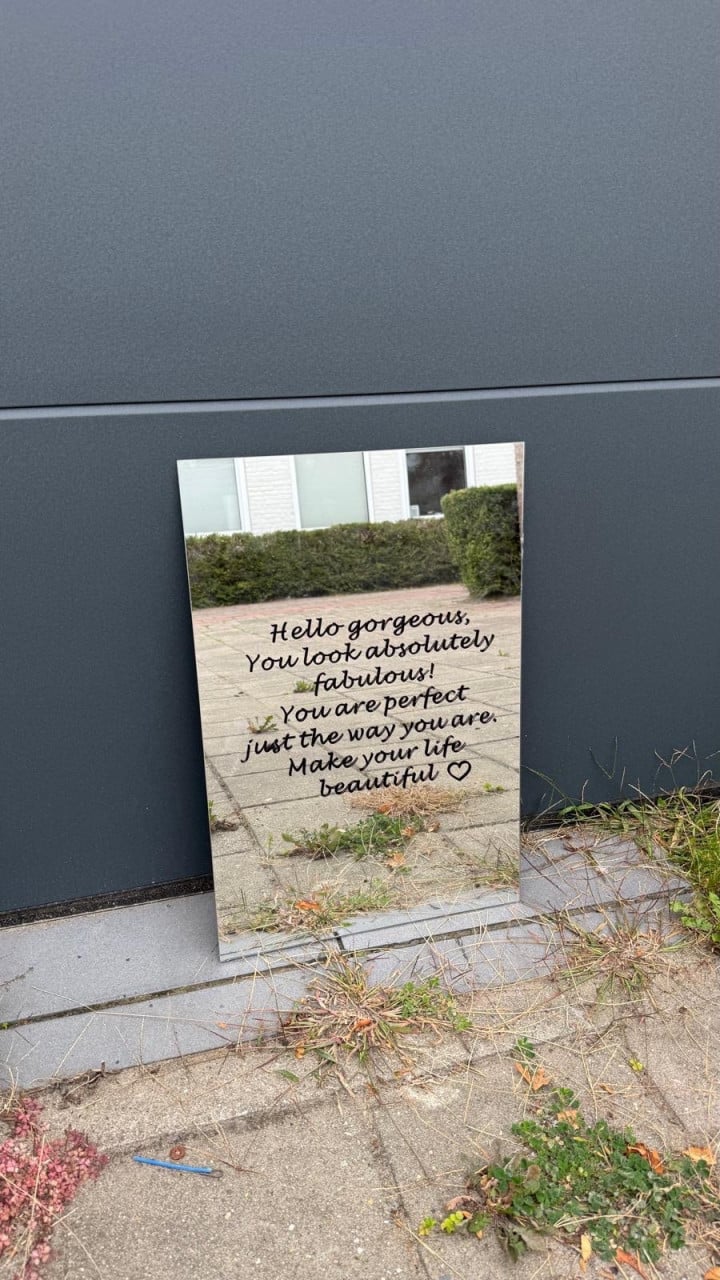 Hello gorgeous,
You look absolutely
fabulous!
You are perfect
just the way you are.
Make your life
beautiful ♡